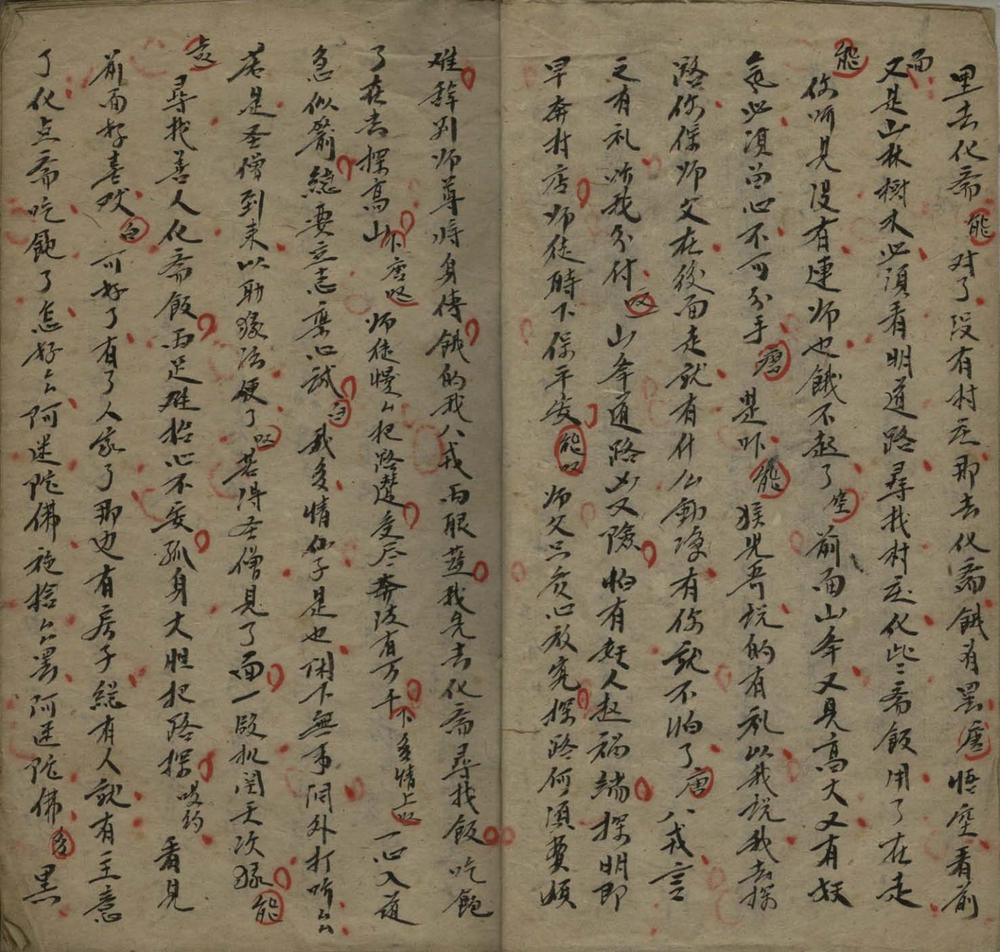 里去化斋 能 对了没有村庄那去化斋饿肴黑 唐 悟空看前
面又是山林樹木必須看明道路尋找村庄化些斋飯用了在走
能 你听見没有連师也餓不起了 空 前面山峯又見高大又有妖
氣必須留心不可分手 唐 是咋 能 猴兄哥说的有礼以我说我去探
路你保师父在後面走就有什么動静有你就不怕了 唐 八戒言
之有礼听我分付 叹 山峯道路凶又險怕有妖人起禍端探明即
早奔村店师徒時下保平安 能叹 师父只管心放宽探路何須費煩
难辞别师尊将身傳餓的我八戒两眼藍我先去化斋尋找飯吃飽
了在去探高山 下 唐叹 师徒慢么把路趱受尽奔波有万千 下 多情上叹 一心入道
急似箭總要立志棄心誠 白 我多情仙子是也闲下無事洞外打听么
若是圣僧到来以助缘法便了 叹 若得圣僧見了面一段机関天次缘 能
叹 尋找善人化斋飯两足难抬心不安孤身大胆把路探 哎约 看見
前面好喜欢 白 可好了有了人家了那边有房子總有人就有主意
了化点斋吃飽了怎好么阿迷陀佛施捨么罢阿迷陀佛 多 黑